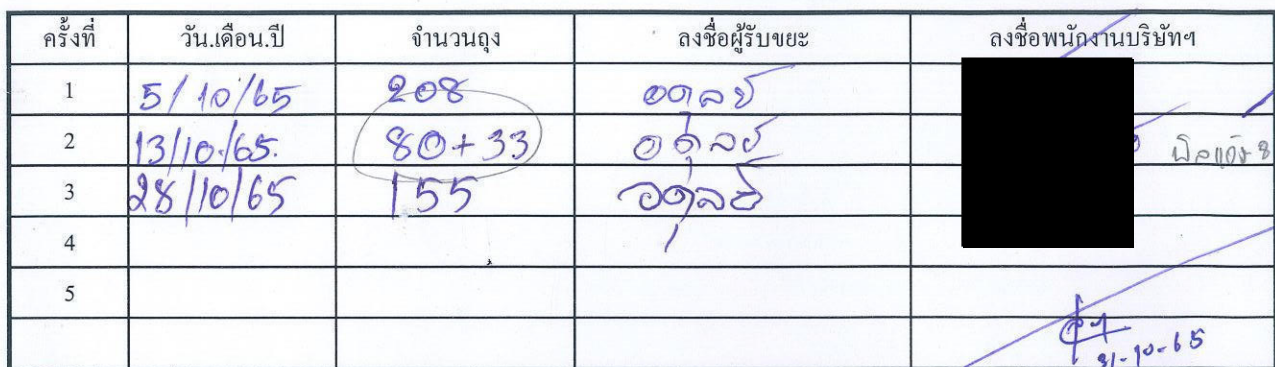 ครั้งที่ วัน.เดือน.ปี จำนวนถุง ลงชื่อผู้รับขยะ ลงชื่อพนักงานบริษัทฯ
1 5/10/65 208 อดุลย์
2 13/10/65. 80+33 อดุลย์
3 28/10/65 155 อดุลย์
4
5
31-10-65